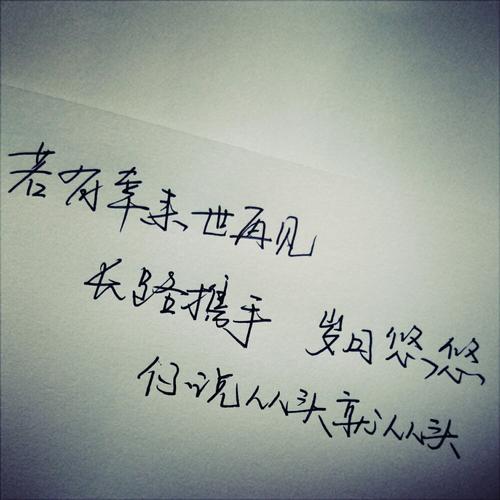 若有幸来世再见
长路携手 岁月悠悠
你说从头就从头